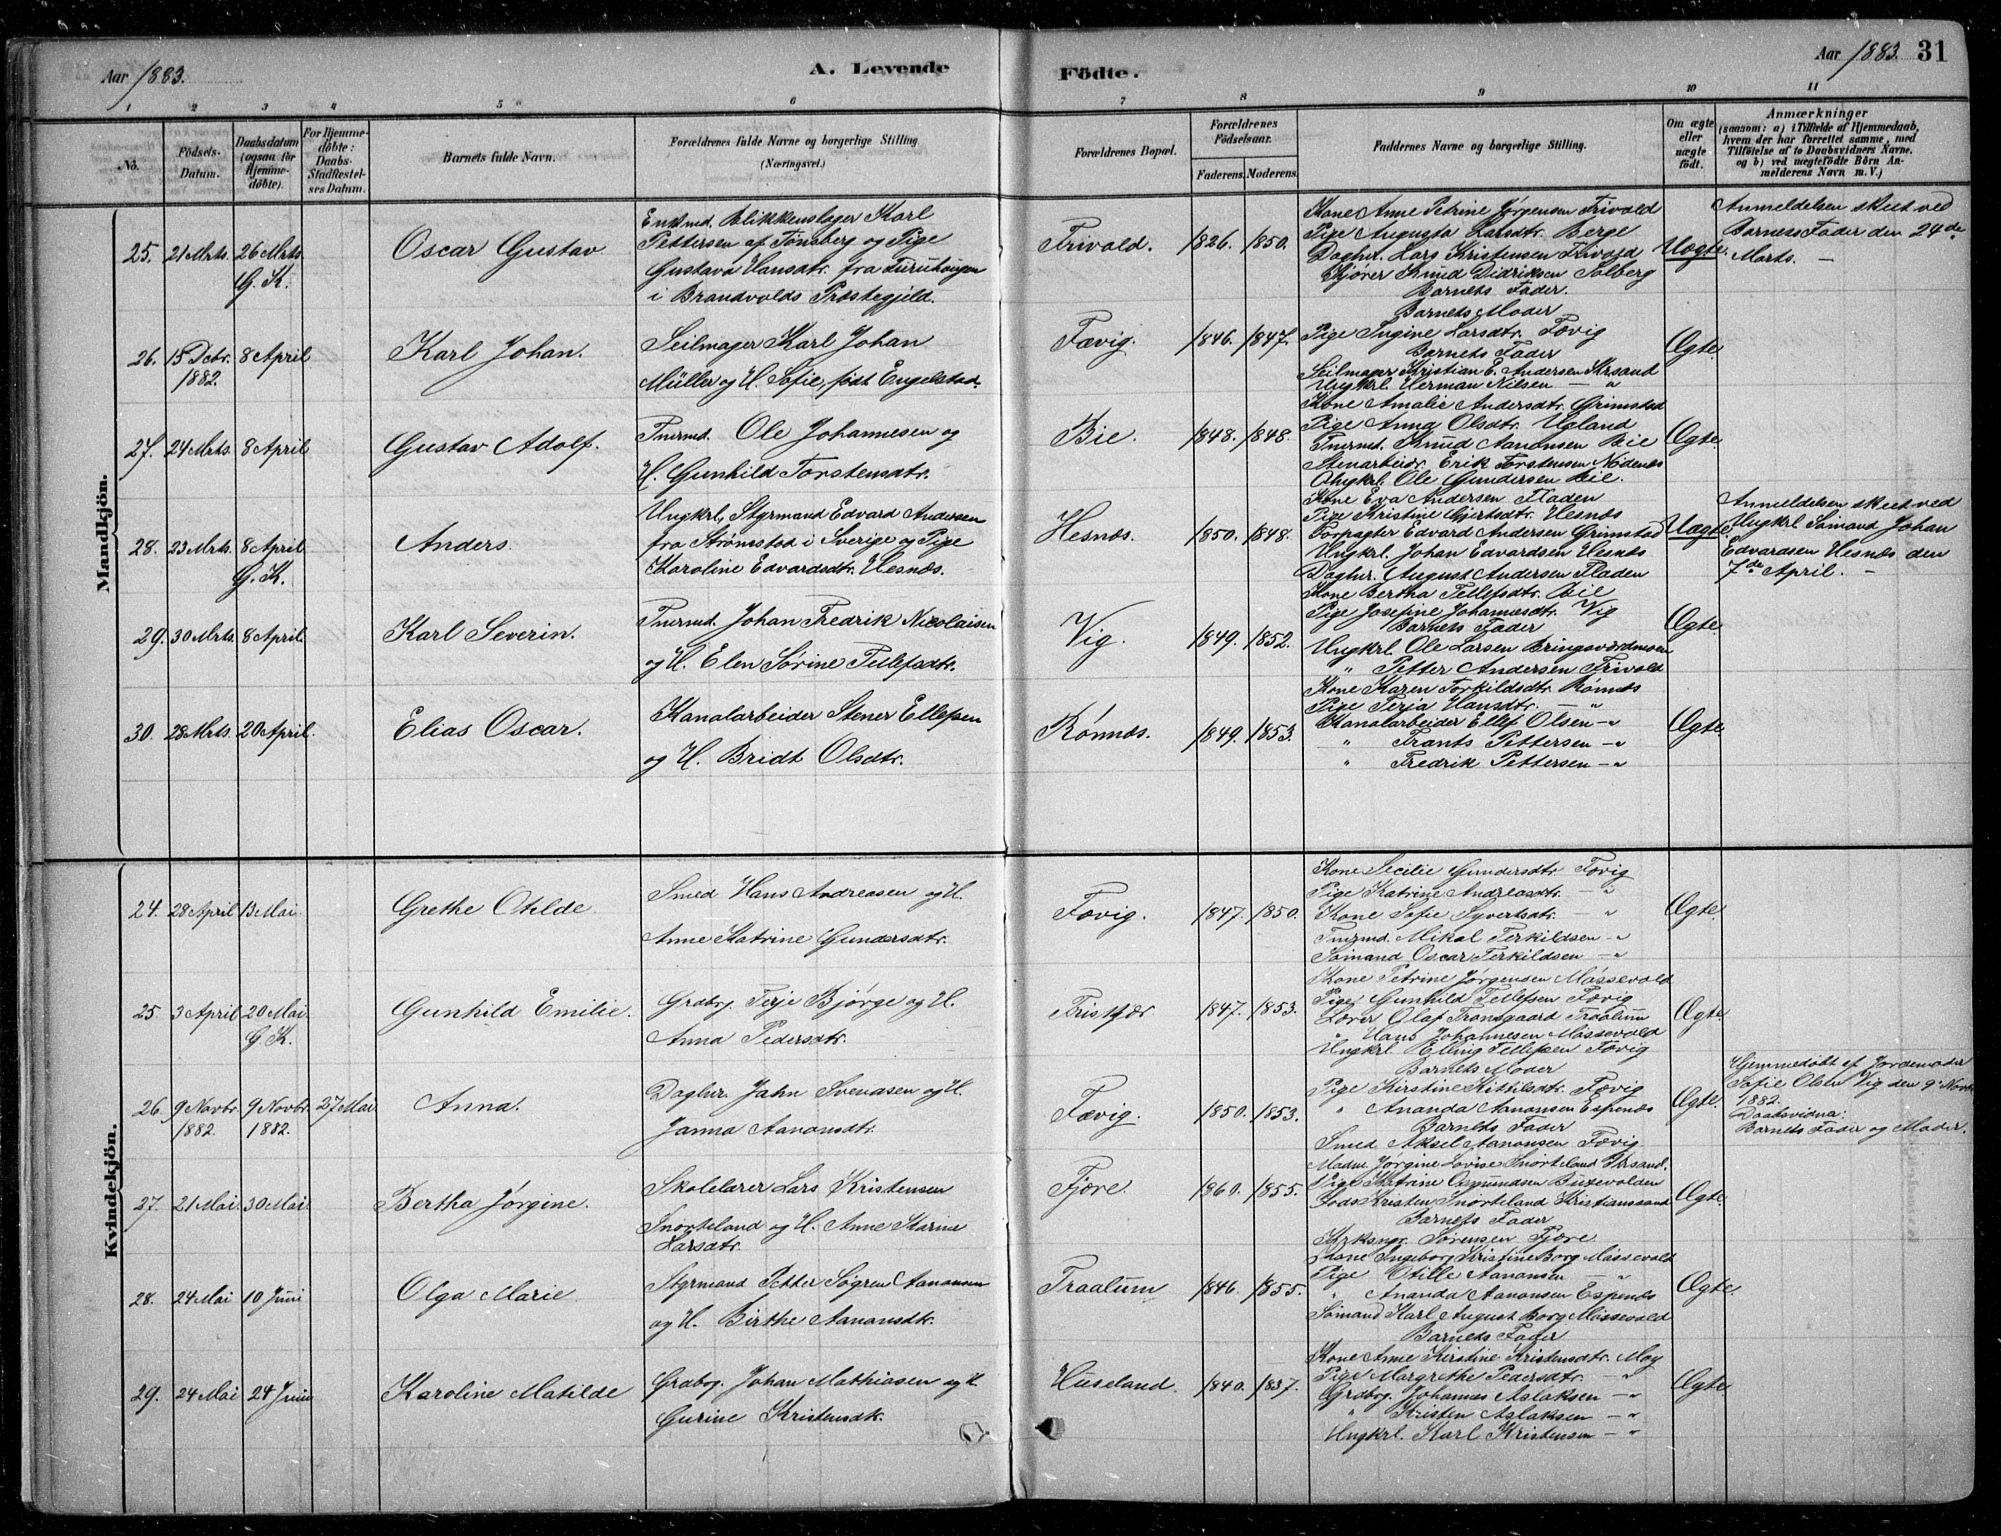 Aar 1883.
A. Levende Födte.
Aar 1883. 31
1 2 3 4 5 6 7 8 9 10 11
No.
Födsels-Datum.
Daabsdatum (ogsaa for Hjemme-döbte).
For Hjemme-döbte: Daabs-Stadfæstel-ses Datum.
Barnets fulde Navn.
Forældrenes fulde Navne og borgerlige Stilling (Næringsvei.)
Forældrenes Bopæl.
Forældrenes Födselsaar.
Faderens. Moderens.
Faddernes Navne og borgerlige Stilling.
Om ægte eller uægte födt.
Anmærkninger
(saasom: a) i Tilfælde af Hjemmedaab, hvem der har forrettet samme, med Tilföielse af to Daabsvidners Navne. og b) ved uægtefödte Börn An-melderens Navn m. V.)
Mandkjön.
25. 21 Mrts. 26 Mrts. G. K.
Oscar Gustav
Enkmd. Blikkenslager Karl
Pettersen af Tønsberg og Pige
Gustava Hansdtr. fra Furuhaugen
i Brandvolds Præstegjeld.
Trivold. 1826. 1850.
Kone Anne Petrine Jørgensen Trivold
Pige Augusta Larsdtr. Berge
Daglnr. Lars Kristensen Trivold
Kjører Knud Didriksen Solberg
Barnets Fader.
Uægte.
Anmeldelsen skeet ved
Barnets Fader den 24de
Marts. —
26. 15 Dcbr. 1882. 8 April
Karl Johan.
Seilmager Karl Johan
Müller og H. Sofie, født Engelstad.
Fævig. 1846. 1847.
Barnets Moder
Pige Ingine Larsdtr. Fævig
Barnets Fader
Seilmager Kristian E. Andersen Krsand
Ungkrl. Herman Nilsen — "
Ægte.
27. 24 Mrts. 8 April
Gustav Adolf.
Tmrmd. Ole Johannesen og
H. Gunhild Torstensdtr.
Bie. 1848. 1848.
Kone Amalie Andersdtr. Grimstad
Pige Anna Olsdtr. Ugland
Tmrmd. Knud Aanonsen Bie
Stenarbeidr. Erik Torstensen Nødenæs
Ungkrl. Ole Gundersen Bie.
Ægte.
28. 23 Mrts. 8 April G. K.
Anders.
Ungkrl. Styrmand Edvard Andersen
fra Strømstad i Sverige og Pige
Karoline Edvardsdtr. Hesnæs.
Hesnæs. 1850. 1848.
Kone Eva Andersen Fladen
Pige Kristine Gjertsdtr. Hesnæs
Forpagter Edvard Andersen Grimstad
Ungkrl. Johan Edvardsen Hesnæs
Daglnr. August Andersen Fladen
Uægte.
Anmeldelsen skeet ved
Ungkrl. Sømand Johan
Edvardsen Hesnæs den
7de April. —
29. 30 Mrts. 8 April
Karl Severin.
Tmrmd. Johan Fredrik Nicolaisen
og H. Elen Sørine Tellefsdtr.
Vig. 1849. 1852.
Kone Bertha Tellefsdtr. Bie
Pige Josefine Johannesdtr. Vig
Barnets Fader
Ungkrl. Ole Larsen Bringsværdmoen
" Petter Andersen Trivold
Ægte.
30. 28 Mrts. 20 April.
Elias Oscar.
Kanalarbeider Stener Ellefsen
og H. Bridt Olsdtr.
Rønnæs. 1849. 1853.
Kone Karen Torkildsdtr. Rønnæs
Pige Terja Hansdtr. — "
Kanalarbeider Ellef Olsen — "
" Frants Pettersen — "
" Fredrik Pettersen — "
Ægte.
Kvindekjön.
24. 28 April 13 Mai.
Grethe Otilde
Smed Hans Andreasen og H.
Anne Katrine Gundersdtr.
Fævig. 1847. 1850.
Kone Secilie Gundersdtr. Fævig
Pige Katrine Andreasdtr. — "
Kone Sofie Syvertsdtr. — "
Tmrmd. Mikal Terkildsen — "
Sømand Oscar Terkildsen — "
Ægte.
25. 3 April 20 Mai. G. K.
Gunhild Emilie.
Grdbrg. Terje Bjørge og H.
Anna Pedersdtr.
Friskjær 1847. 1853.
Kone Petrine Jørgensen Mossevold
Pige Gunhild Tellefsen Fævig
Lærer Olaf Tronsgaard Traalum
" Hans Johannesen Mossevold
Ungkrl. Elling Tellefsen Fævig
Ægte.
26. 9 Novbr. 1882. 9 Novbr. 1882. 27 Mai
Anna.
Daglnr. Jahn Svendsen og H.
Janna Aanonsdtr.
Fævig. 1850. 1853.
Barnets Moder
Pige Kirstine Kittilsdtr. Fævig
" Ananda Aanonsen Espenæs
Barnets Fader
Smed Aksel Aanonsen Fævig
Ægte.
Hjemmedøbt af Jordemoder
Sofie Olsen Vig den 9 Novbr.
1882.
Daabsvidner:
Barnets Fader og Moder.
27. 21 Mai. 30 Mai
Bertha Jørgine.
Skolelærer Lars Kristensen
Snorteland og H. Anne Karine
Larsdtr.
Fjære. 1860. 1855.
Madm. Jørgine Lovise Snorteland Krsand.
Pige Katrine Osmundsen
Kristen Snorteland Kristianssand
Barnets Fader
Kirksngr. Sørensen Fjære
Ægte.
28. 24 Mai 10 Juni
Olga Marie
Styrmand Petter Søgren Aanonsen
og H. Birthe Aanonsdtr.
Traalum 1846. 1855.
Kone Ingeborg Kristine Borg Mossevold
Pige Otilie Aanonsen — "
" Ananda Aanonsen Espenæs
Sømand Karl August Borg Mossevold
Barnets Fader
Ægte.
29. 24 Mai 24 Juni
Karoline Matilde
Grdbrg. Johan Mathiasen og H.
Gurine Kristensdtr.
Huseland. 1840. 1837.
Kone Anne Kirstine Kristensdtr. Moy
Pige Margrethe Pedersdtr. — "
Grdbrg. Johannes Aslaksen — "
" Kristen Aslaksen — "
Ungkrl. Karl Kristensen — "
Ægte.